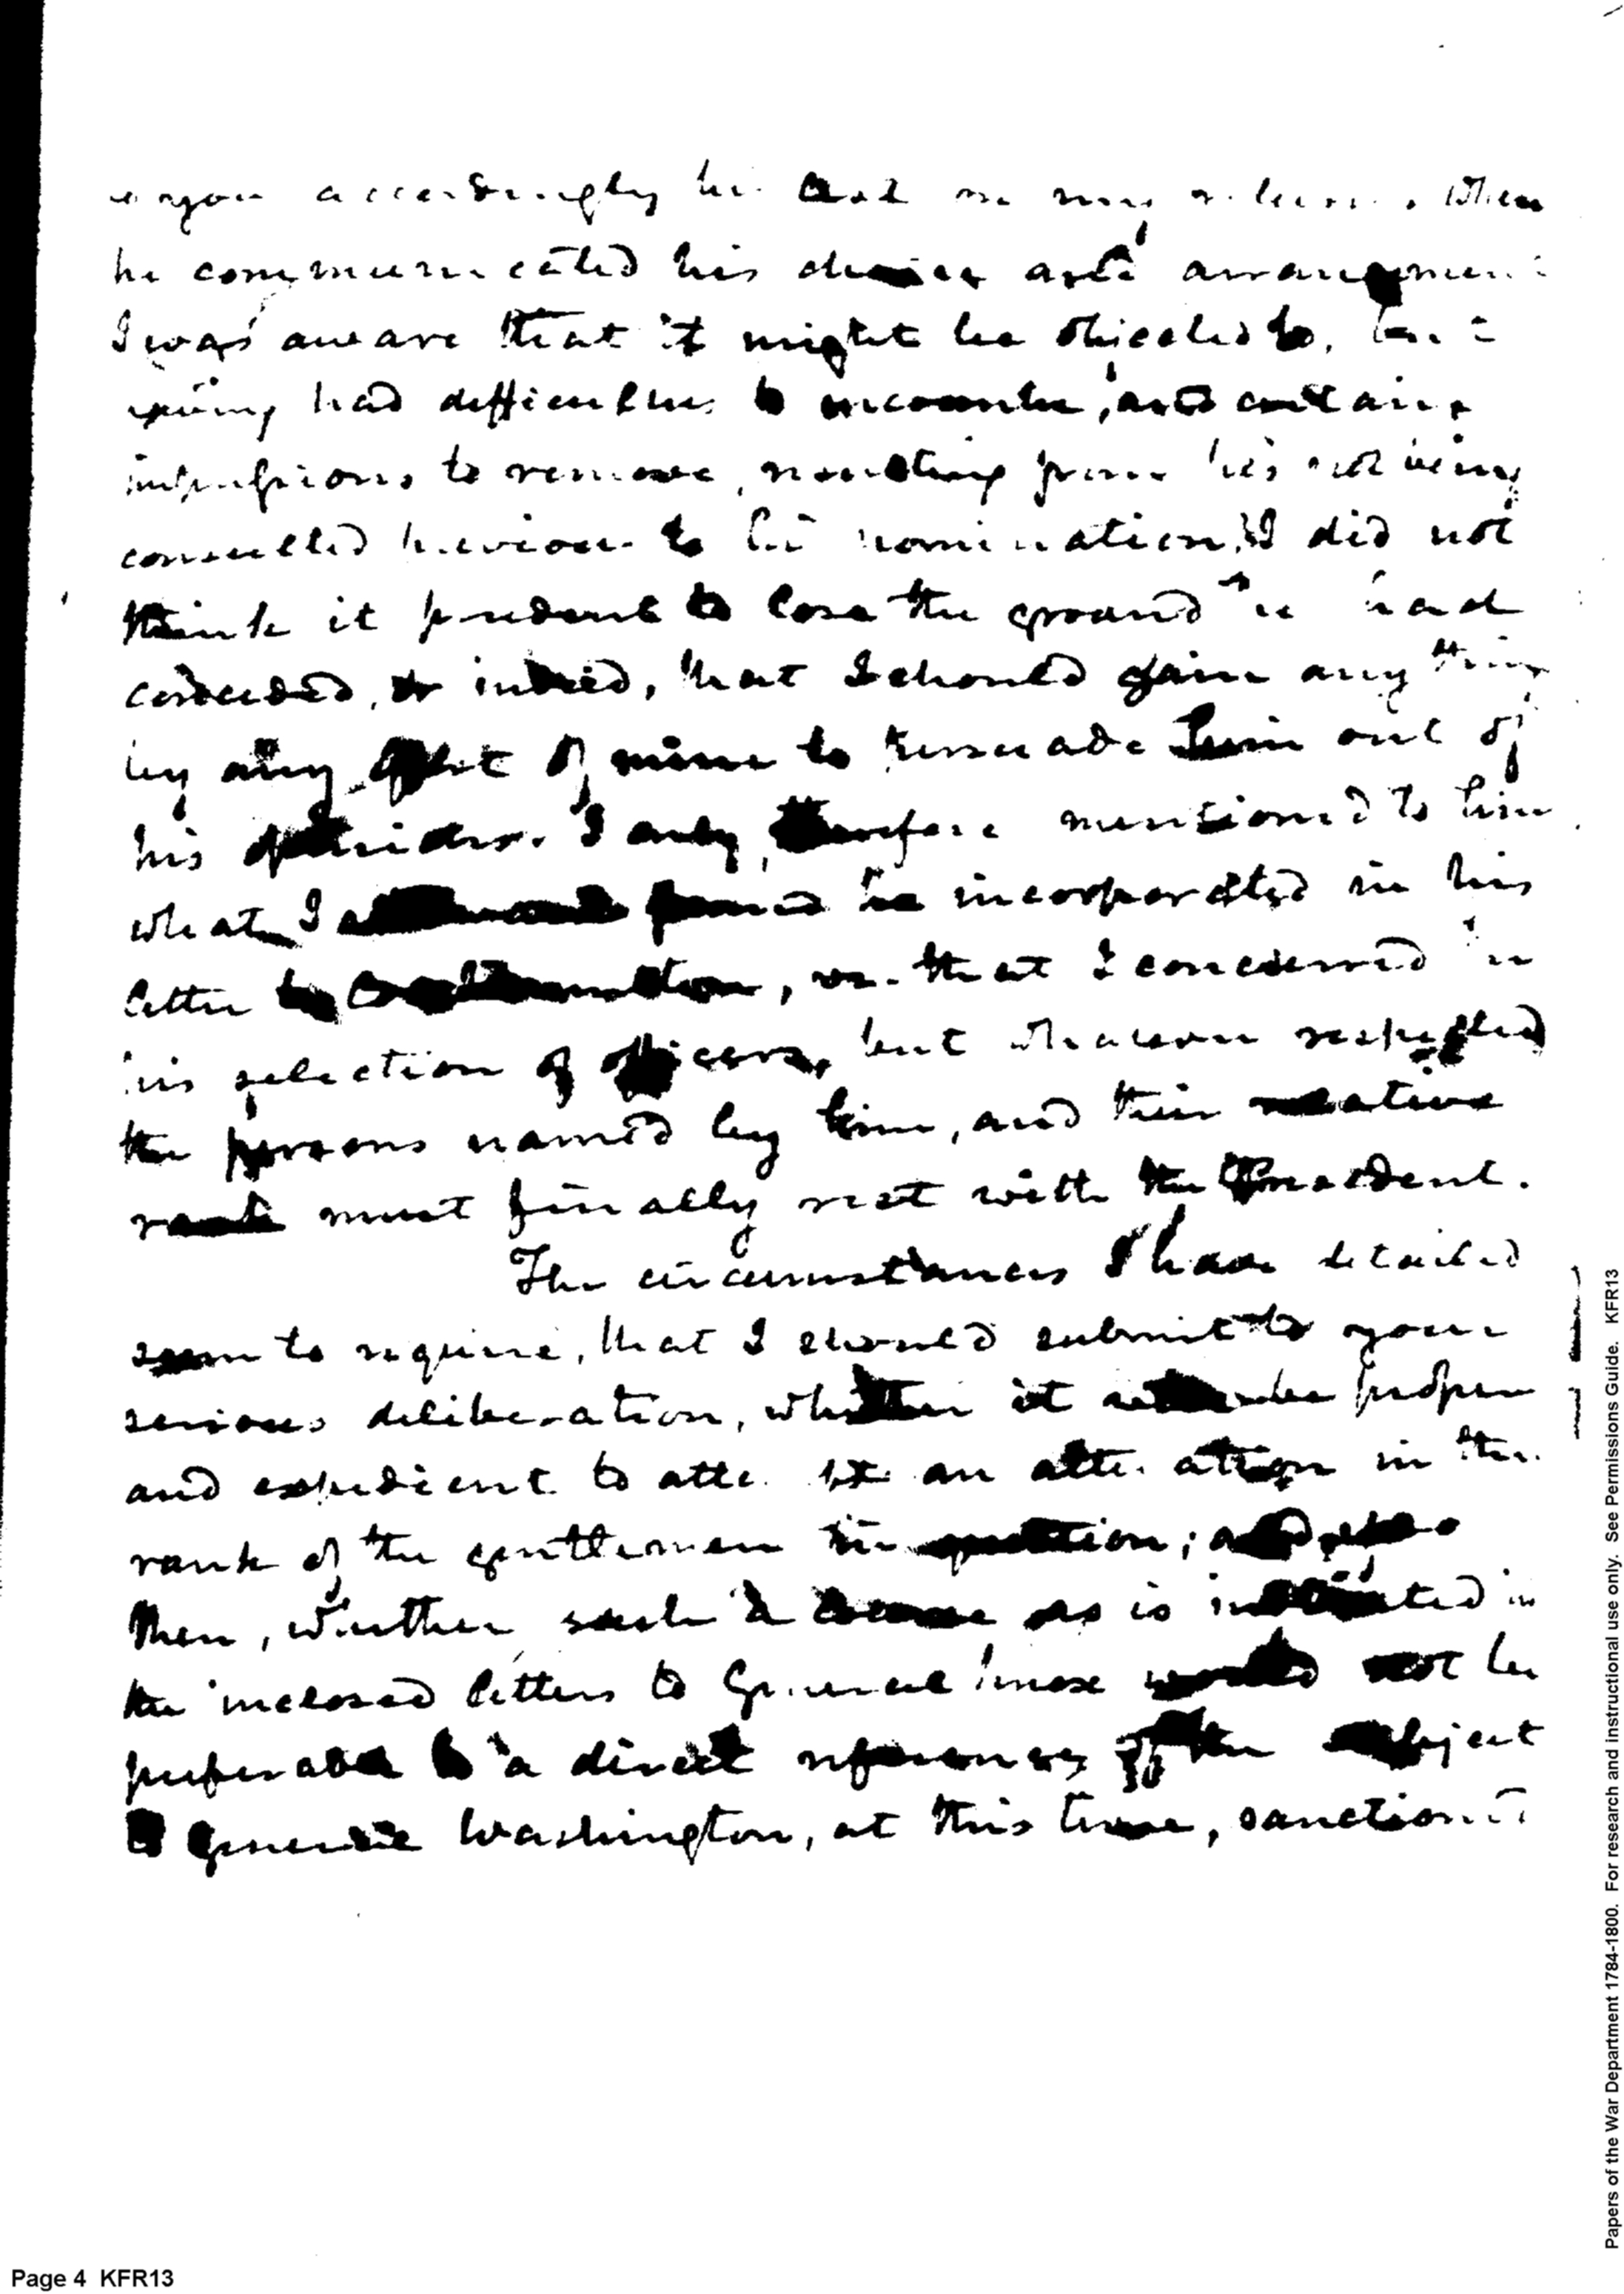 you accordingly he and on my when
he communicated his and arrangement
I was aware that it might be objected to, but
having had difficulties to encounter, and certain
impressions to remove, resulting from his not being
consulted previous to his nomination, I did not
think it prudent to lose the ground he had
conceded, or indeed, that I should gain any thing
by any of mine to persuade him out of
his opinion. I only, therefore mentioned to him
what I be incorporated in his
letter , viz. that I concurred in
his selection of officers, but whatever respected
the persons named by him, and their relative
rank must finally rest with the President.
The circumstances I have detailed
seem to require, that I should submit to your
serious deliberation, whether it will be proper
and expedient to attempt an alteration in the
rank of the gentlemen in question; and also
then, whether such a course as is indicated in
the inclosed letters to General Knox would not be
preferable to a direct reference of the subject
to General Washington, at this time, sanctioned
Page 4 KFR13
Papers of the War Department 1784-1800. For research and instructional use only. See Permissions Guide. KFR13